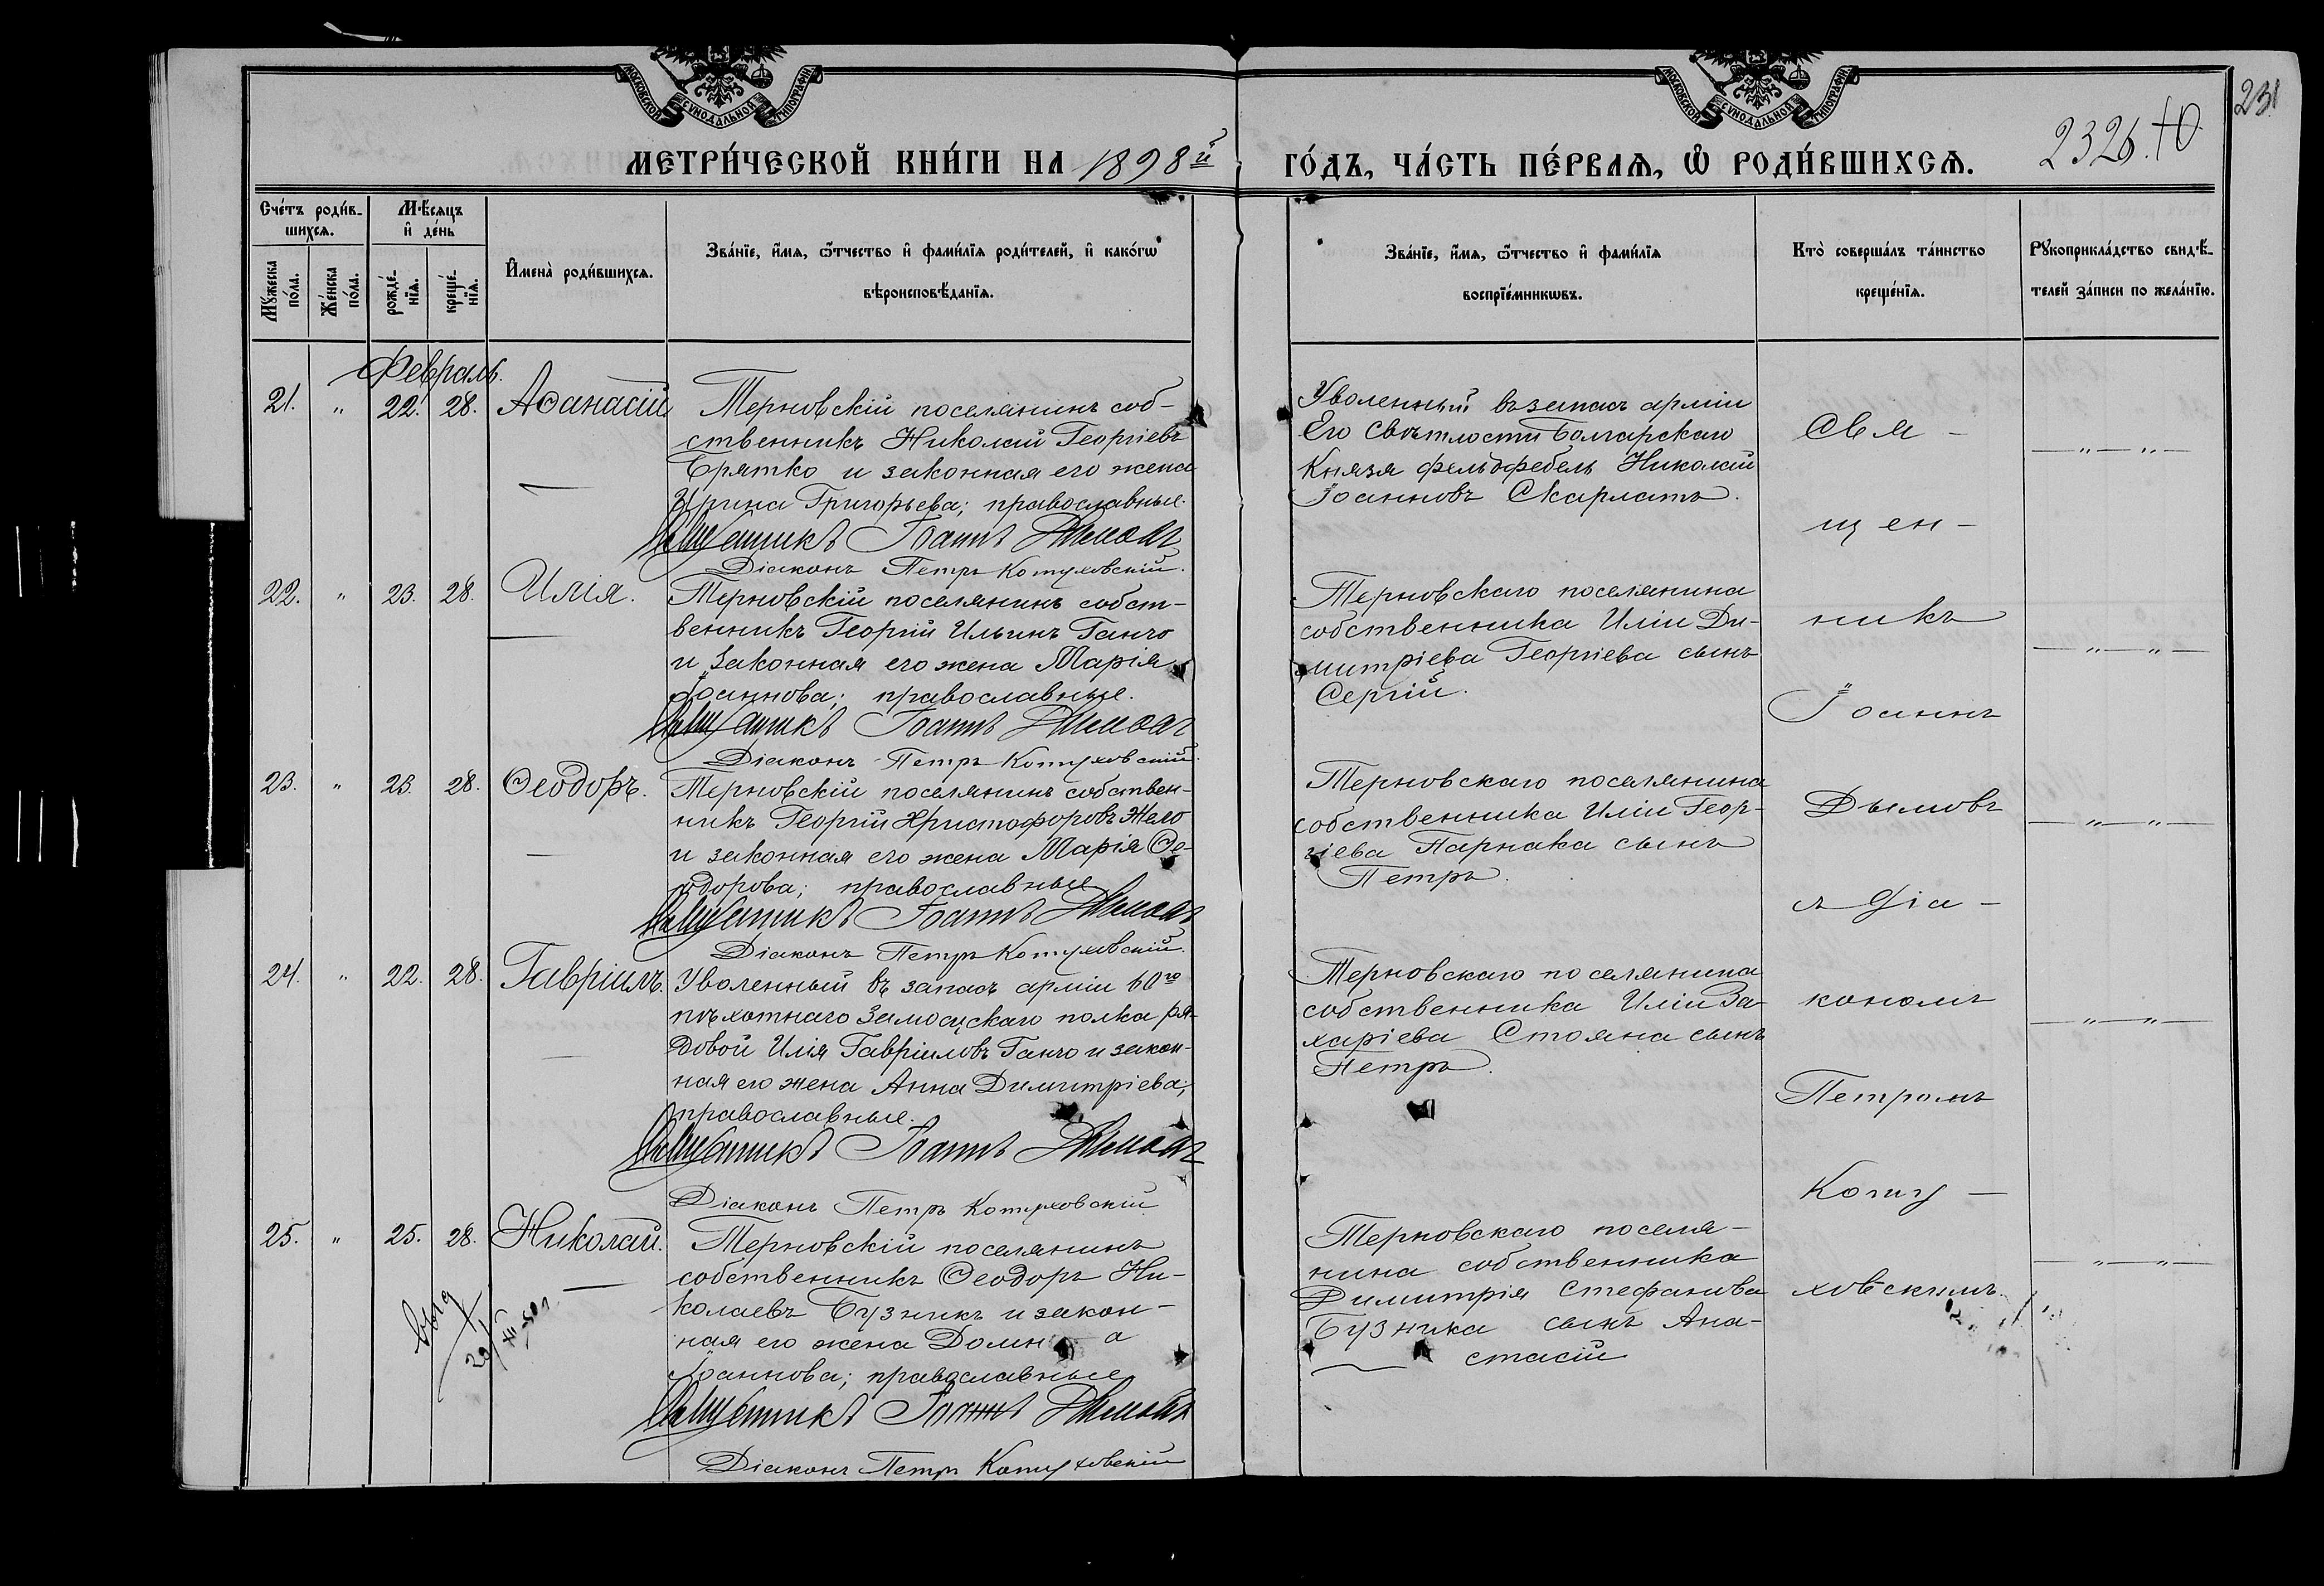 МОСКОВСКОЙ СѴНОДАЛЬНОЙ ТИПОГРАФІИ
МОСКОВСКОЙ СѴНОДАЛЬНОЙ ТИПОГРАФІИ
231
МЕТРИ́ЧЕСКОЙ КНИ́ГИ НА 1898й
ГО́ДЪ, ЧА́СТЬ ПЕ́РВАѦ, Ѡ҆ РОДИ́ВШИХСѦ.
2326.
Сче́тъ роди́в-
шихсѧ.
Мꙋ́жеска по́ла.
Же́нска по́ла.
Мѣ́сѧцъ и҆ де́нь
рожде́-нїѧ.
креще́-нїѧ.
И҆мена̀ роди́вшихсѧ.
Зва́нїе, и҆́мѧ, ѻ҆́тчество и҆ фами́лїѧ роди́телей, и҆ како́гѡ
вѣроисповѣ́данїѧ.
Зва́нїе, и҆́мѧ, ѻ҆́тчество и҆ фами́лїѧ
воспрїе́мникѡвъ.
Кто̀ соверша́лъ та́инство
креще́нїѧ.
Рꙋкоприкла́дство свидѣ́-
телей за́писи по жела́нїю.
Февраль.
21. " 22. 28. Аѳанасій
Терновскій поселянинъ соб-
ственникъ Николай Георгіевъ
Братко и законная его жена
Ирина Григорьева; православные.
Священникъ Іоаннъ Дымовъ
Діаконъ Петръ Котуховскій.
Уволенный въ запасъ арміи
Его Свѣтлости Болгарскаго
Князя фельдфебель Николай
Іоанновъ Скарлатъ.
22. " 23. 28. Илія.
Терновскій поселянинъ собст-
венникъ Георгій Ильинъ Ганчо
и законная его жена Марія
Іоаннова; православные.
Священникъ Іоаннъ Дымовъ
Діаконъ Петръ Котуховскій.
Терновскаго поселянина
собственника Иліи Ди-
митріева Георгіева сынъ
Сергій.
23. " 23. 28. Ѳеодоръ.
Терновскій поселянинъ собствен-
никъ Георгій Христофоровъ Жело
и законная его жена Марія Ѳе-
одорова; православные
Священникъ Іоаннъ Дымовъ
Діаконъ Петръ Котуховскій.
Терновскаго поселянина
собственника Иліи Геор-
гіева Парнака сынъ
Петръ.
24. " 22. 28. Гавріилъ.
Уволенный въ запасъ арміи 60го
пѣхотнаго Замосцскаго полка ря-
довой Илія Гавріиловъ Ганчо и закон-
ная его жена Анна Димитріева;
православные.
Священникъ Іоаннъ Дымовъ
Діаконъ Петръ Котуховскій
Терновскаго поселянина
собственника Иліи За-
харіева Стояна сынъ
Петръ.
25. " 25. 28. Николай.
Терновскій поселянинъ
собственникъ Ѳеодоръ Ни-
колаевъ Бузникъ и закон-
ная его жена Домн а
Іоаннова; православные
Священникъ Іоаннъ Дымовъ
Діаконъ Петръ Котуховскій
Терновскаго поселя-
нина собственника
Димитрія Стефанова
Бузника сынъ Ана-
стасій
Свя-
щен-
никъ
Іоаннъ
Дымовъ
съ діа-
кономъ
Петромъ
Коту-
ховскимъ.